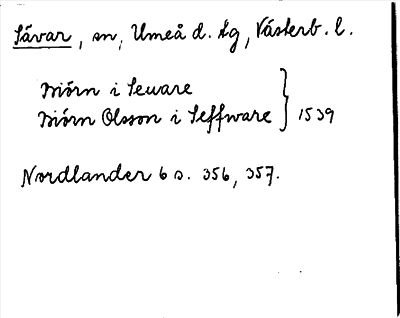 Sävar, sn, Umeå d. tg, Västerb. l.
Biörn i Seware
Biörn Olsson i Seffware } 1539
Nordlander 6 s. 356, 357.